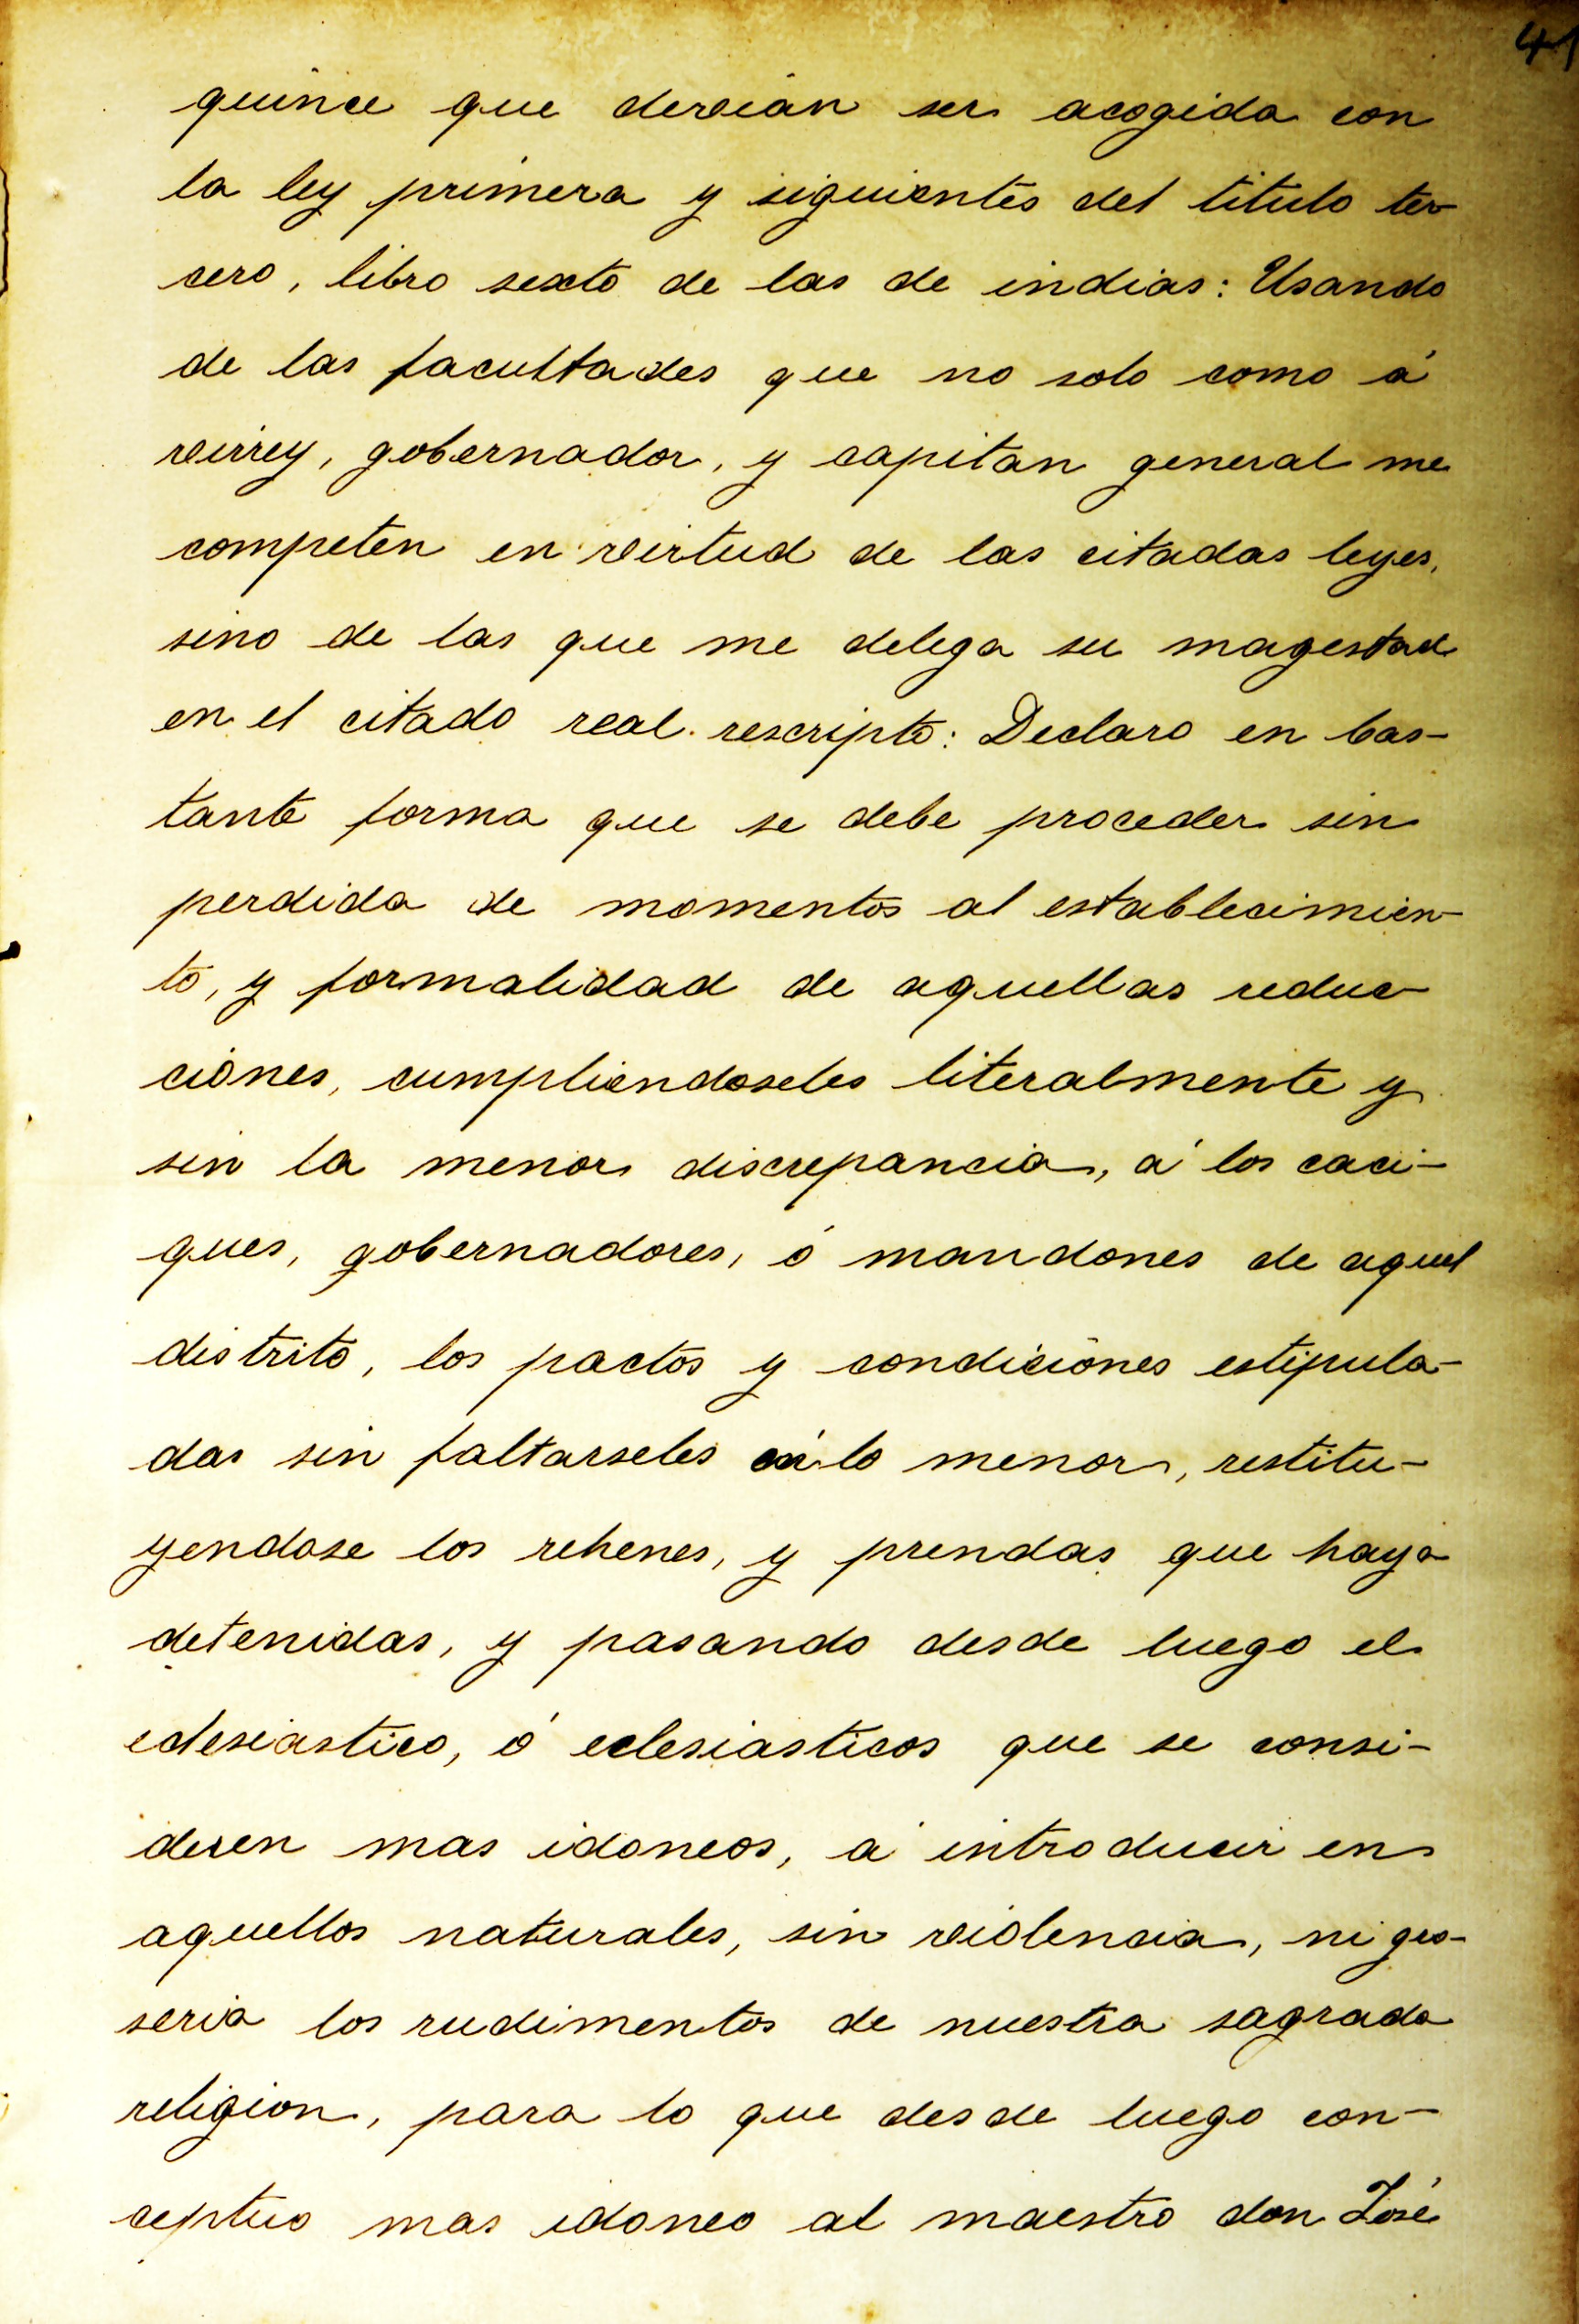 41
quince que devian ser acogida con
la ley primera y siguientes del titulo ter-
cero, libro sexto de las de indias: Usando
de las facultades que no solo como á
virrey, gobernador, y capitan general me
competen en virtud de las citadas leyes,
sino de las que me delega su magestad
en el citado real rescripto: Declaro en bas-
tante forma que se debe proceder sin
perdida de momentos al establecimien-
to, y formalidad de aquellas reduc-
ciones, cumpliendoseles literalmente y
sin la menor discrepancia, á los caci-
ques, gobernadores, ó mandones de aquel
distrito, los pactos y condiciones estipula-
das sin faltarseles lo menor, restitu-
yendose los rehenes, y prendas que haya
detenidas, y pasando desde luego el
eclesiastico, ó eclesiasticos que se consi-
deren mas idoneos, á introducir en
aquellos naturales, sin violencia, ni gro-
seria los rudimentos de nuestra sagrada
religion, para lo que desde luego con-
ceptuo mas idoneo al maestro don José